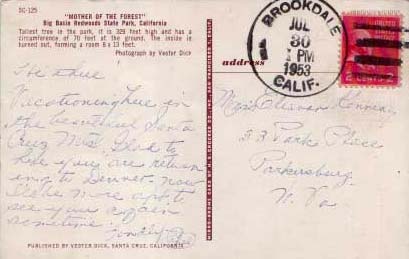 SC-125
"MOTHER OF THE FOREST"
Big Basin Redwoods State Park, California
Tallest tree in the park, it is 329 feet high and has a
circumference of 70 feet at the ground. The inside is
turned out, forming a room 6 x 13 feet.
Photograph by Vester Dick
address
BROOKDALE
JUL
30
PM
1953
CALIF.
Vacationing here in
the beautiful Santa
Cruz Mts. Glad to
hear you are return
ing to Denver. Now
I'll be more apt to
see you again
sometime.
Fondly
Miss Eleanor
Park Place
Parkersburg
W. Va
PUBLISHED BY VESTER DICK, SANTA CRUZ, CALIFORNIA